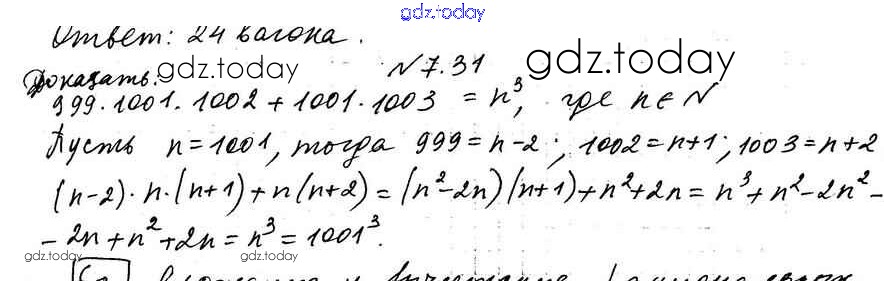 gdz.today
Ответ: 24 вагона.
Доказать. gdz.today № 7.31 gdz.today
999·1001·1002 + 1001·1003 = n³, где n∈N
Пусть n=1001, тогда 999=n-2; 1002=n+1; 1003=n+2
(n-2)·n·(n+1)+n(n+2)=(n²-2n)(n+1)+n²+2n=n³+n²-2n²-
-2n+n²+2n=n³=1001³.
gdz.today gdz.today gdz.today